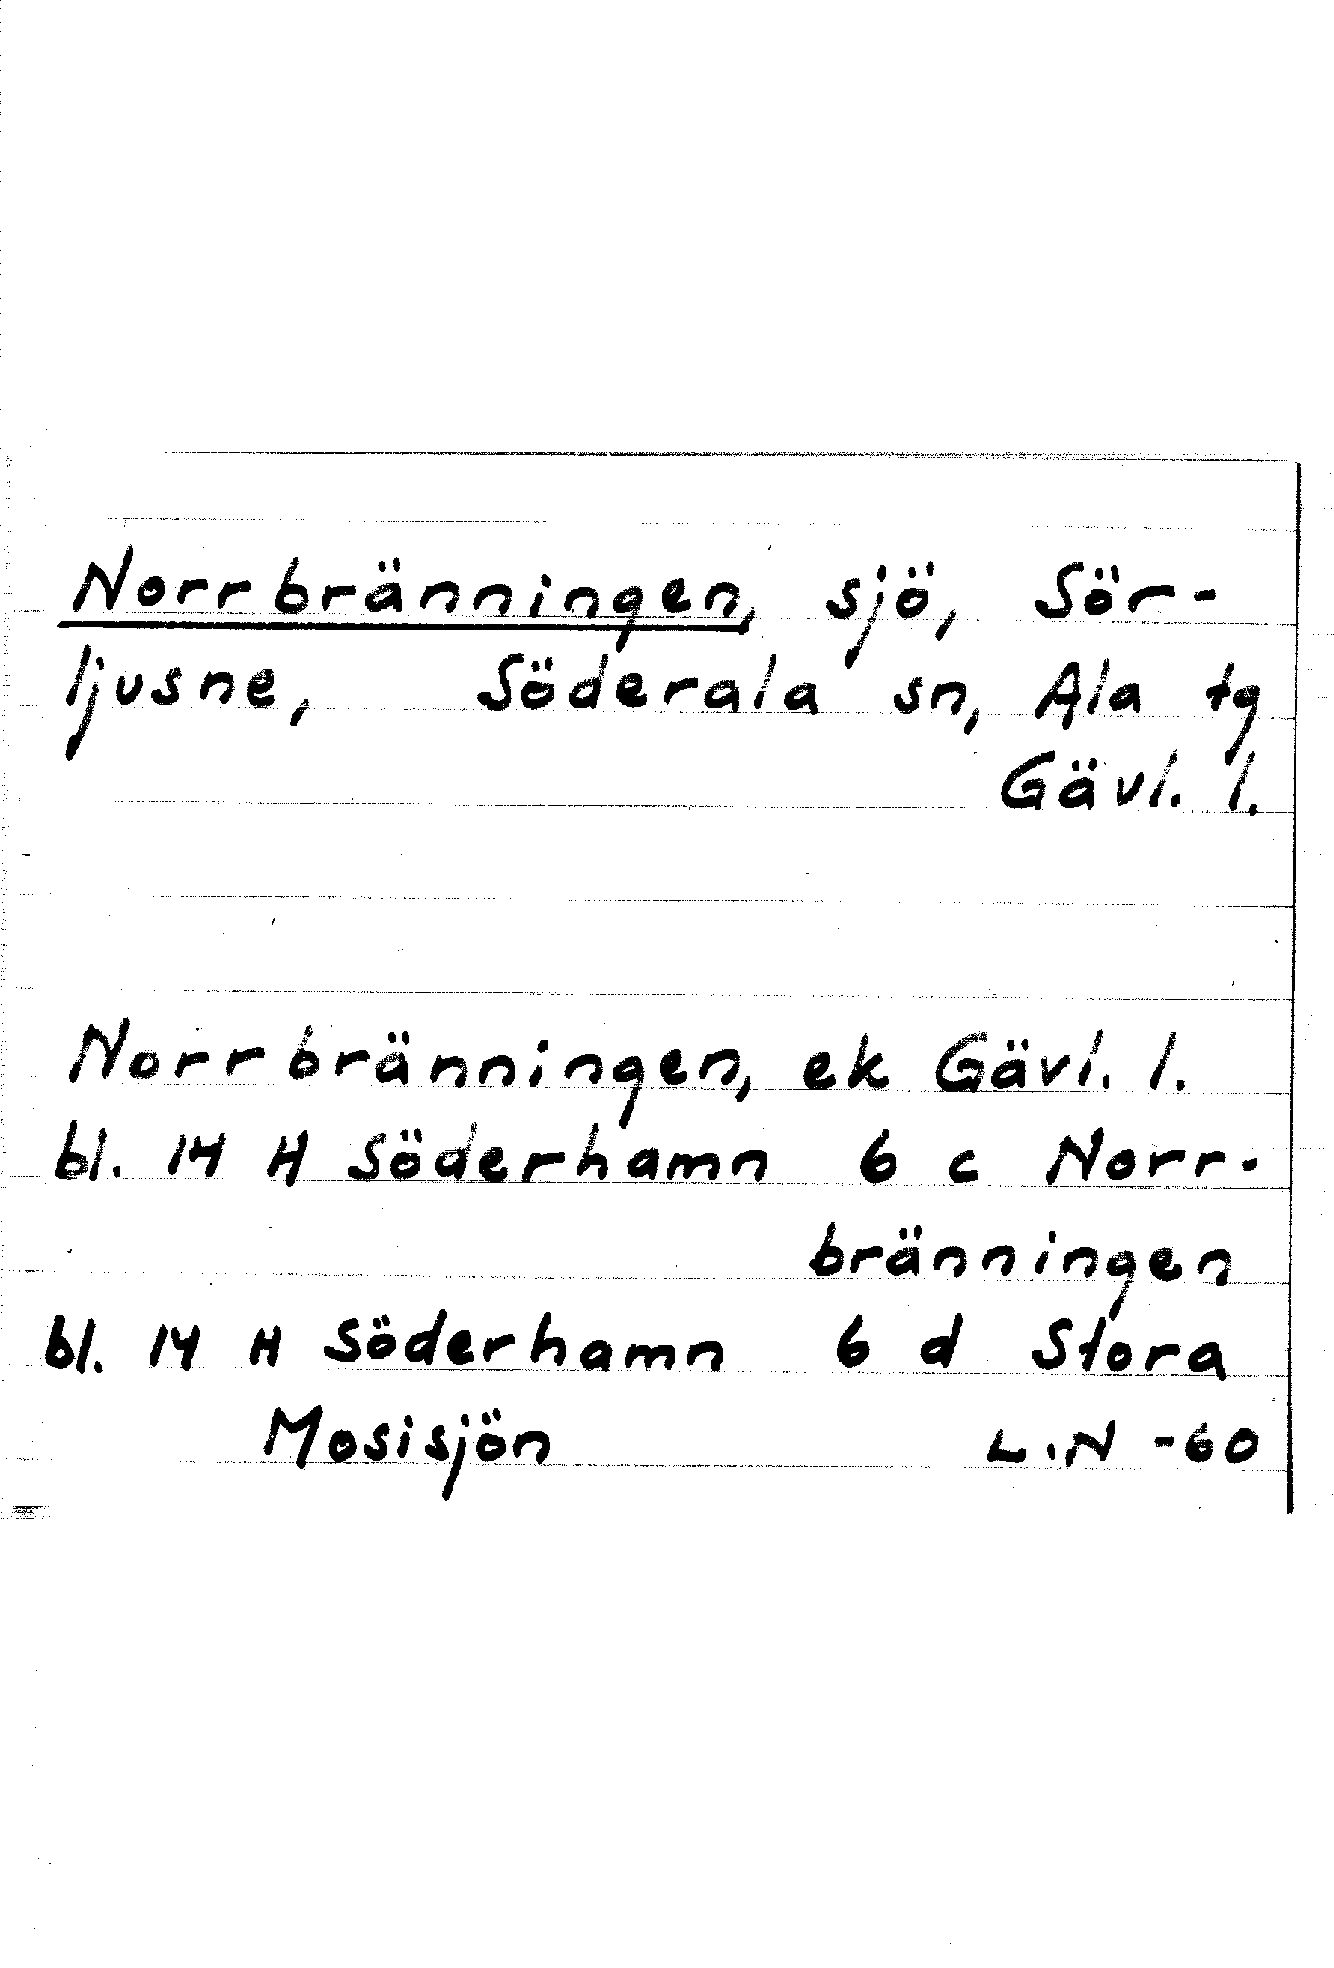 Norrbränningen, sjö, Sör-
ljusne, Söderala sn, Ala tg
Gävl. l.
Norrbränningen, ek Gävl. l.
bl. 14 H Söderhamn 6 c Norr-
bränningen
bl. 14 H Söderhamn 6 d Stora
Mosisjön L.N -60